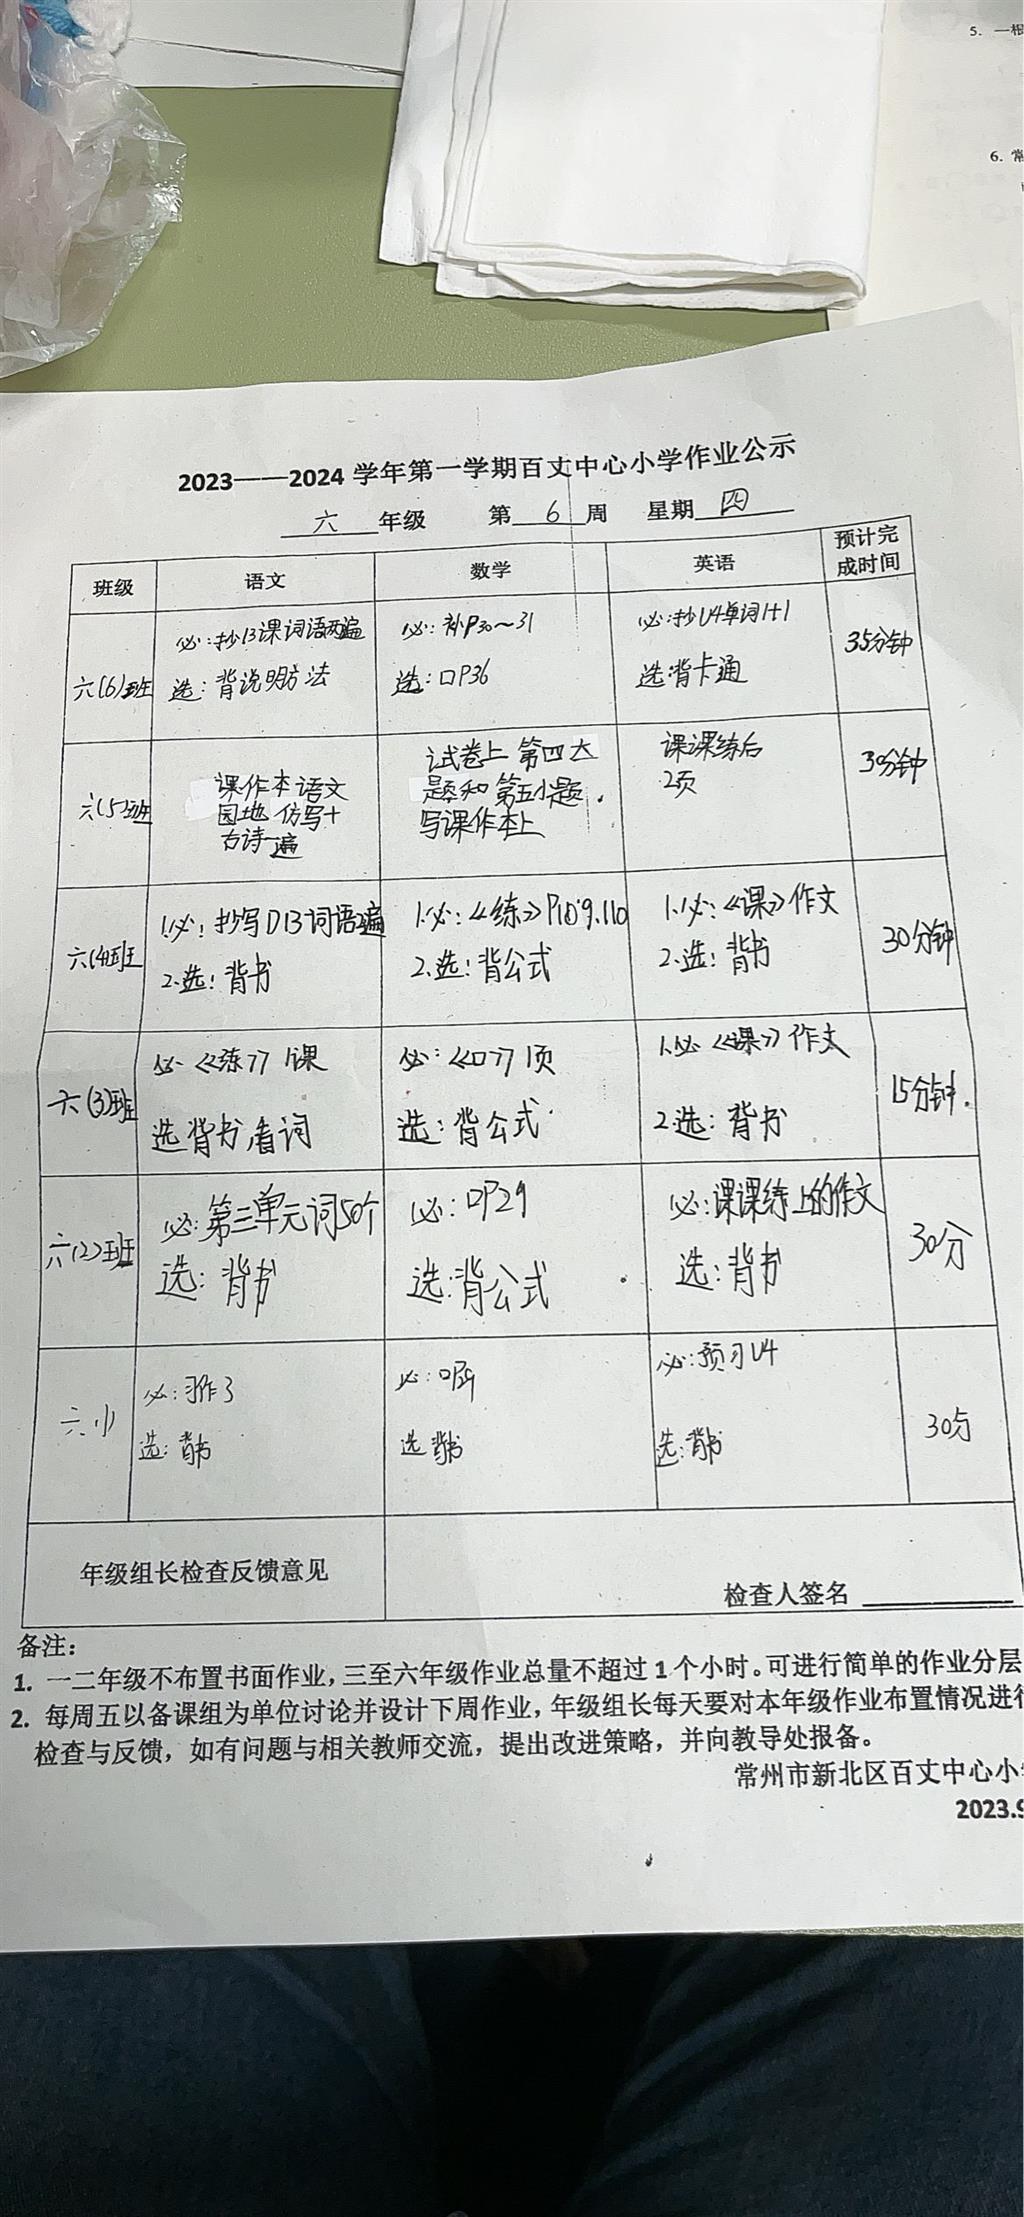 5. 一根
6. 常
2023——2024 学年第一学期百丈中心小学作业公示
六 年级 第 6 周 星期 四
班级 语文 数学 英语 预计完成时间
六(6)班
必:抄13课词语两遍
选:背说明方法
必:补P30～31
选:口P36
必:抄U4单词1+1
选:背卡通
35分钟
六(5)班
课作本语文
园地 仿写+
古诗一遍
试卷上 第四大
题和 第五小题.
写课作本上
课课练后
2页
30分钟
六(4)班
1.必:抄写D13词语2遍
2.选:背书
1.必:《练》P109.110
2.选:背公式
1.必:《课》作文
2.选:背书
30分钟
六(3)班
必:《练》1课
选 背书,看词
必:《口》1页
选:背公式
1.必《课》作文
2.选:背书
15分钟.
六(2)班
必:第三单元词50个
选:背书
必:口P29
选:背公式
必:课课练上的作文
选:背书
30分
六(1)
必:习作3
选:背书
必:口
选 背书
必:预习U4
选:背书
30分
年级组长检查反馈意见
检查人签名
备注:
1. 一二年级不布置书面作业,三至六年级作业总量不超过 1 个小时。可进行简单的作业分层
2. 每周五以备课组为单位讨论并设计下周作业,年级组长每天要对本年级作业布置情况进行
检查与反馈,如有问题与相关教师交流,提出改进策略,并向教导处报备。
常州市新北区百丈中心小学
2023.9